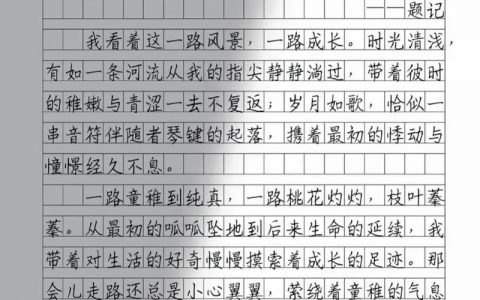 ——题记
我看着这一路风景,一路成长。时光清浅,
有如一条河流从我的指尖静静淌过,带着彼时
的稚嫩与青涩一去不复返;岁月如歌,恰似一
串音符伴随者琴键的起落,携着最初的悸动与
憧憬经久不息。
一路童稚到纯真,一路桃花灼灼,枝叶蓁
蓁。从最初的呱呱坠地到后来生命的延续,我
带着对生活的好奇慢慢摸索着成长的足迹。那
会儿走路还总是小心翼翼,萦绕着童稚的气息